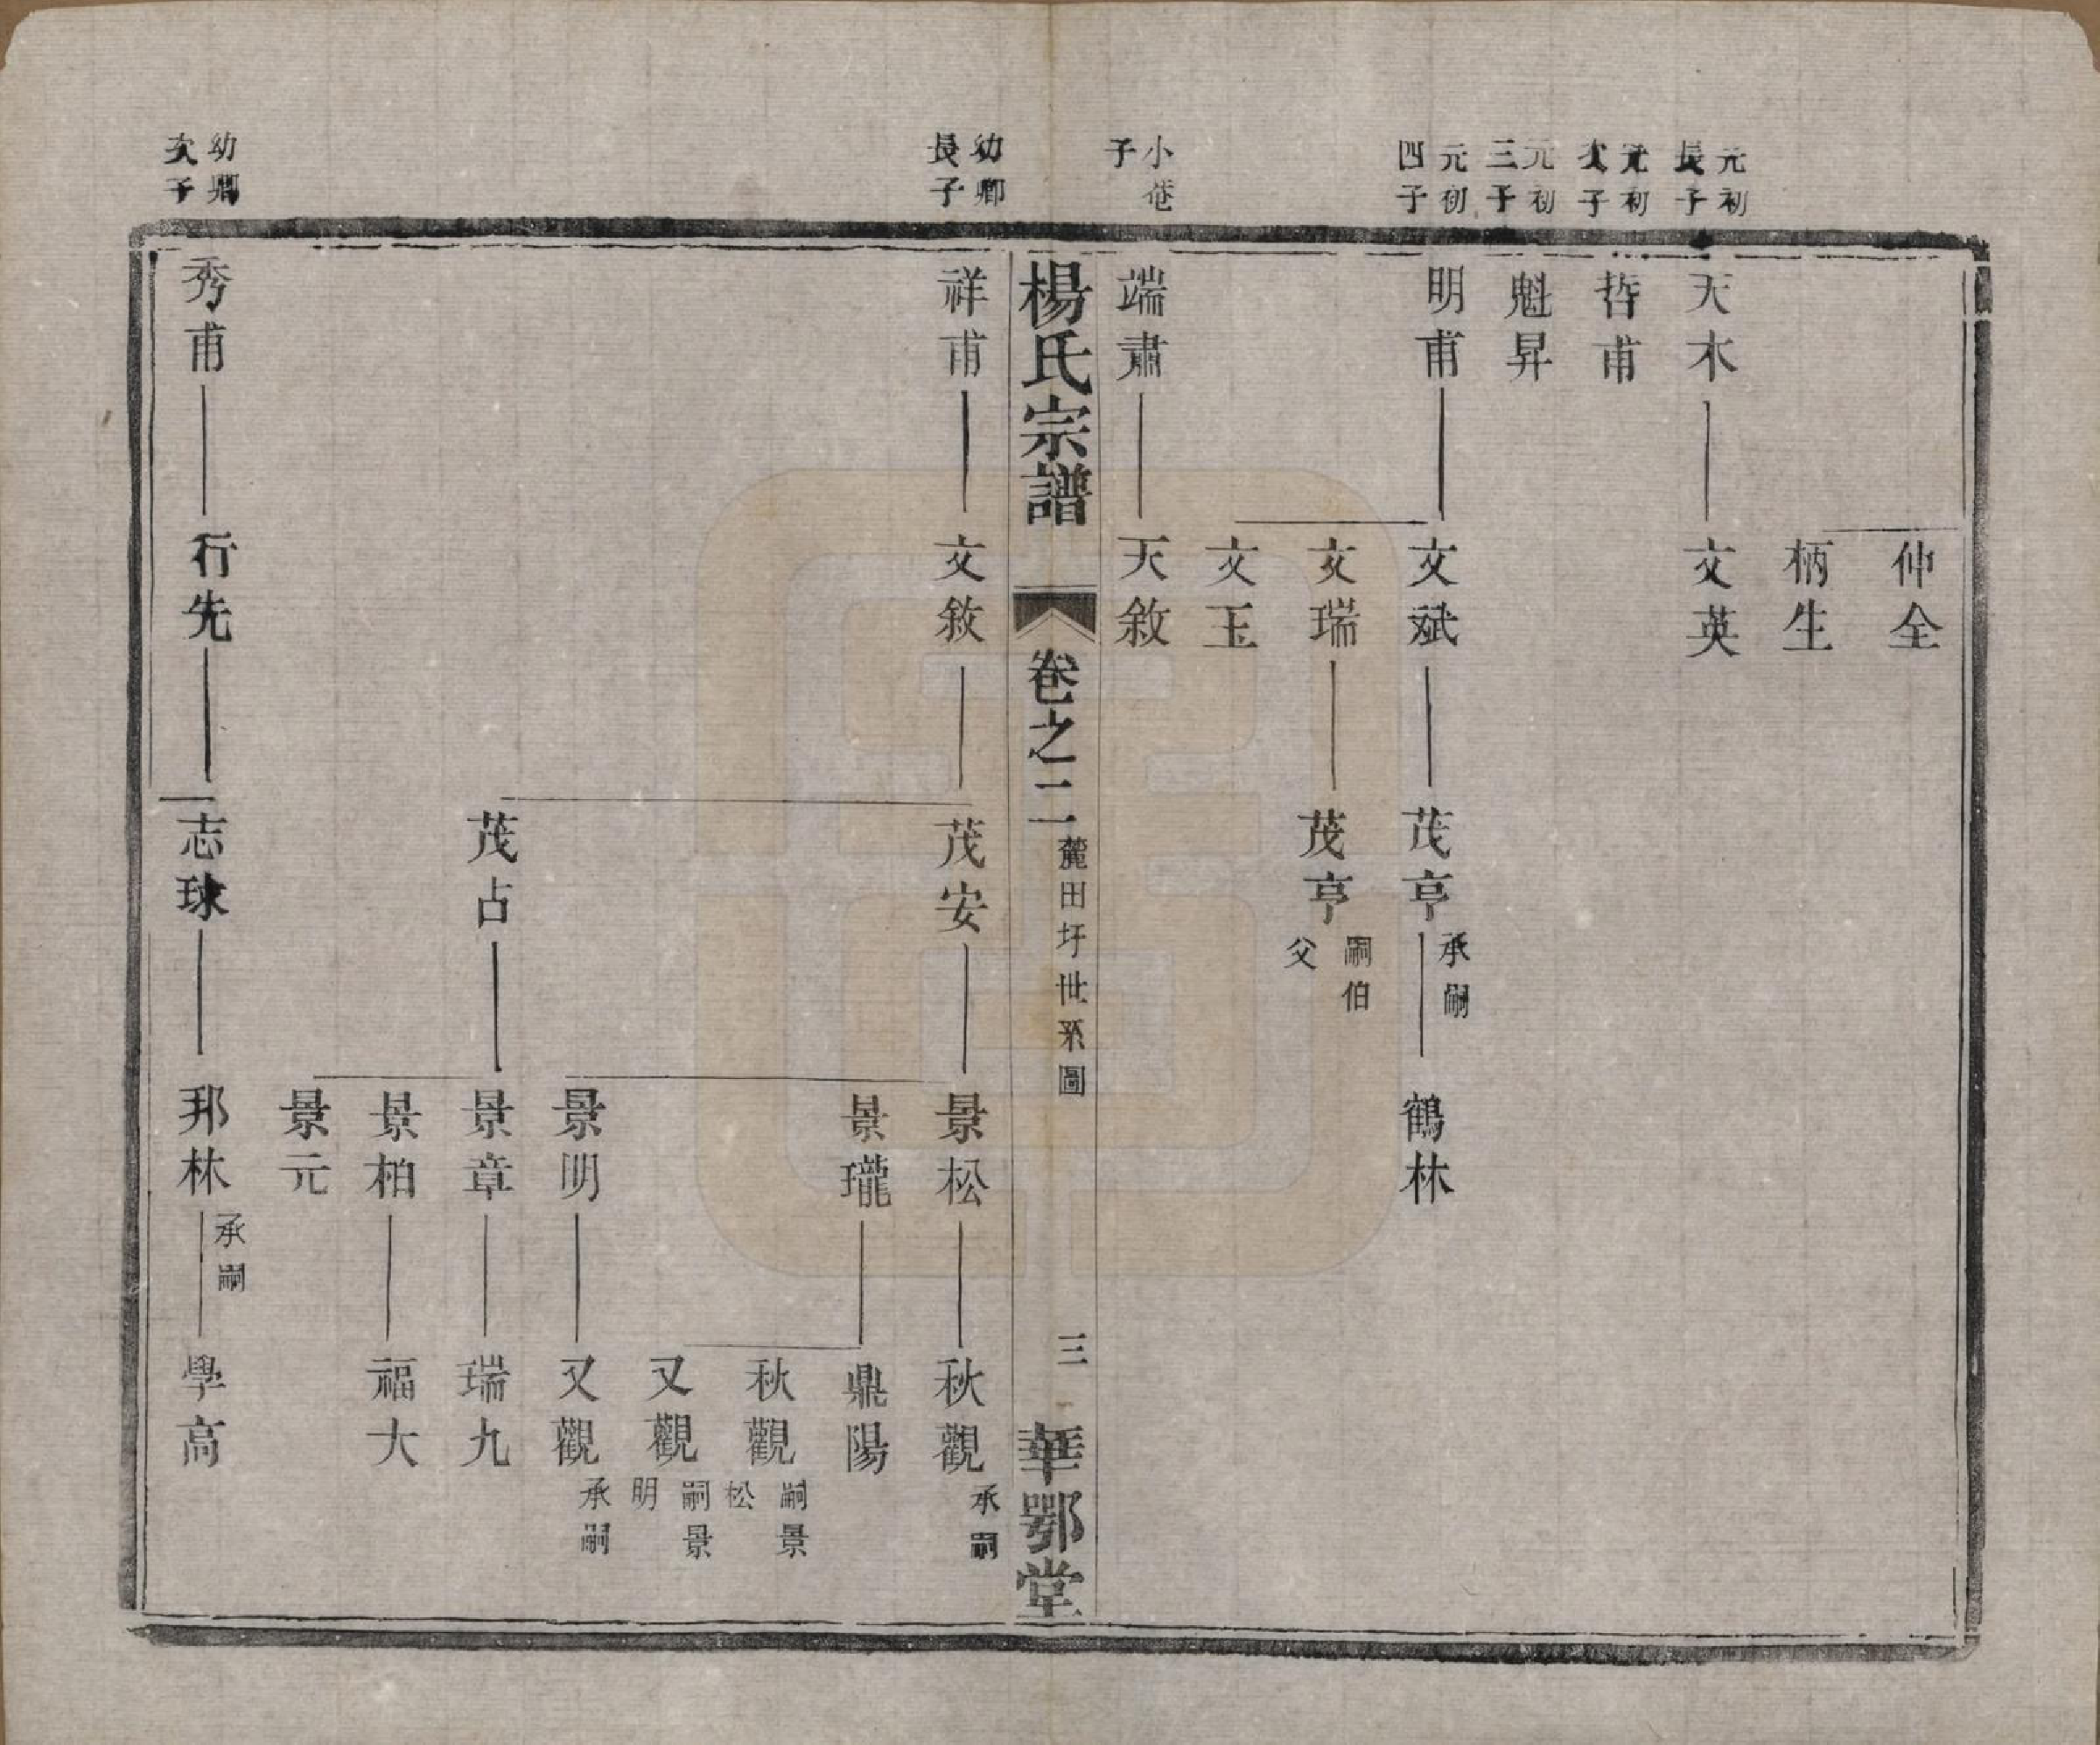 仲全
柄生
元初長子
天木
文英
元初次子
哲甫
元初三子
魁昇
元初四子
明甫
文斌
茂亨
承嗣
鶴林
文瑞
茂亨
嗣伯父
文玉
小菴子
端肅
天敘
楊氏宗譜
卷之二
麓田圩世系圖
三
華鄂堂
幼卿長子
祥甫
文敘
茂安
景松
秋觀
承嗣
景瓏
鼎陽
秋觀
嗣景松
又觀
嗣景明
景明
又觀
承嗣
茂占
景章
瑞九
景柏
福大
景元
幼卿次子
秀甫
行先
志球
邦林
承嗣
學高